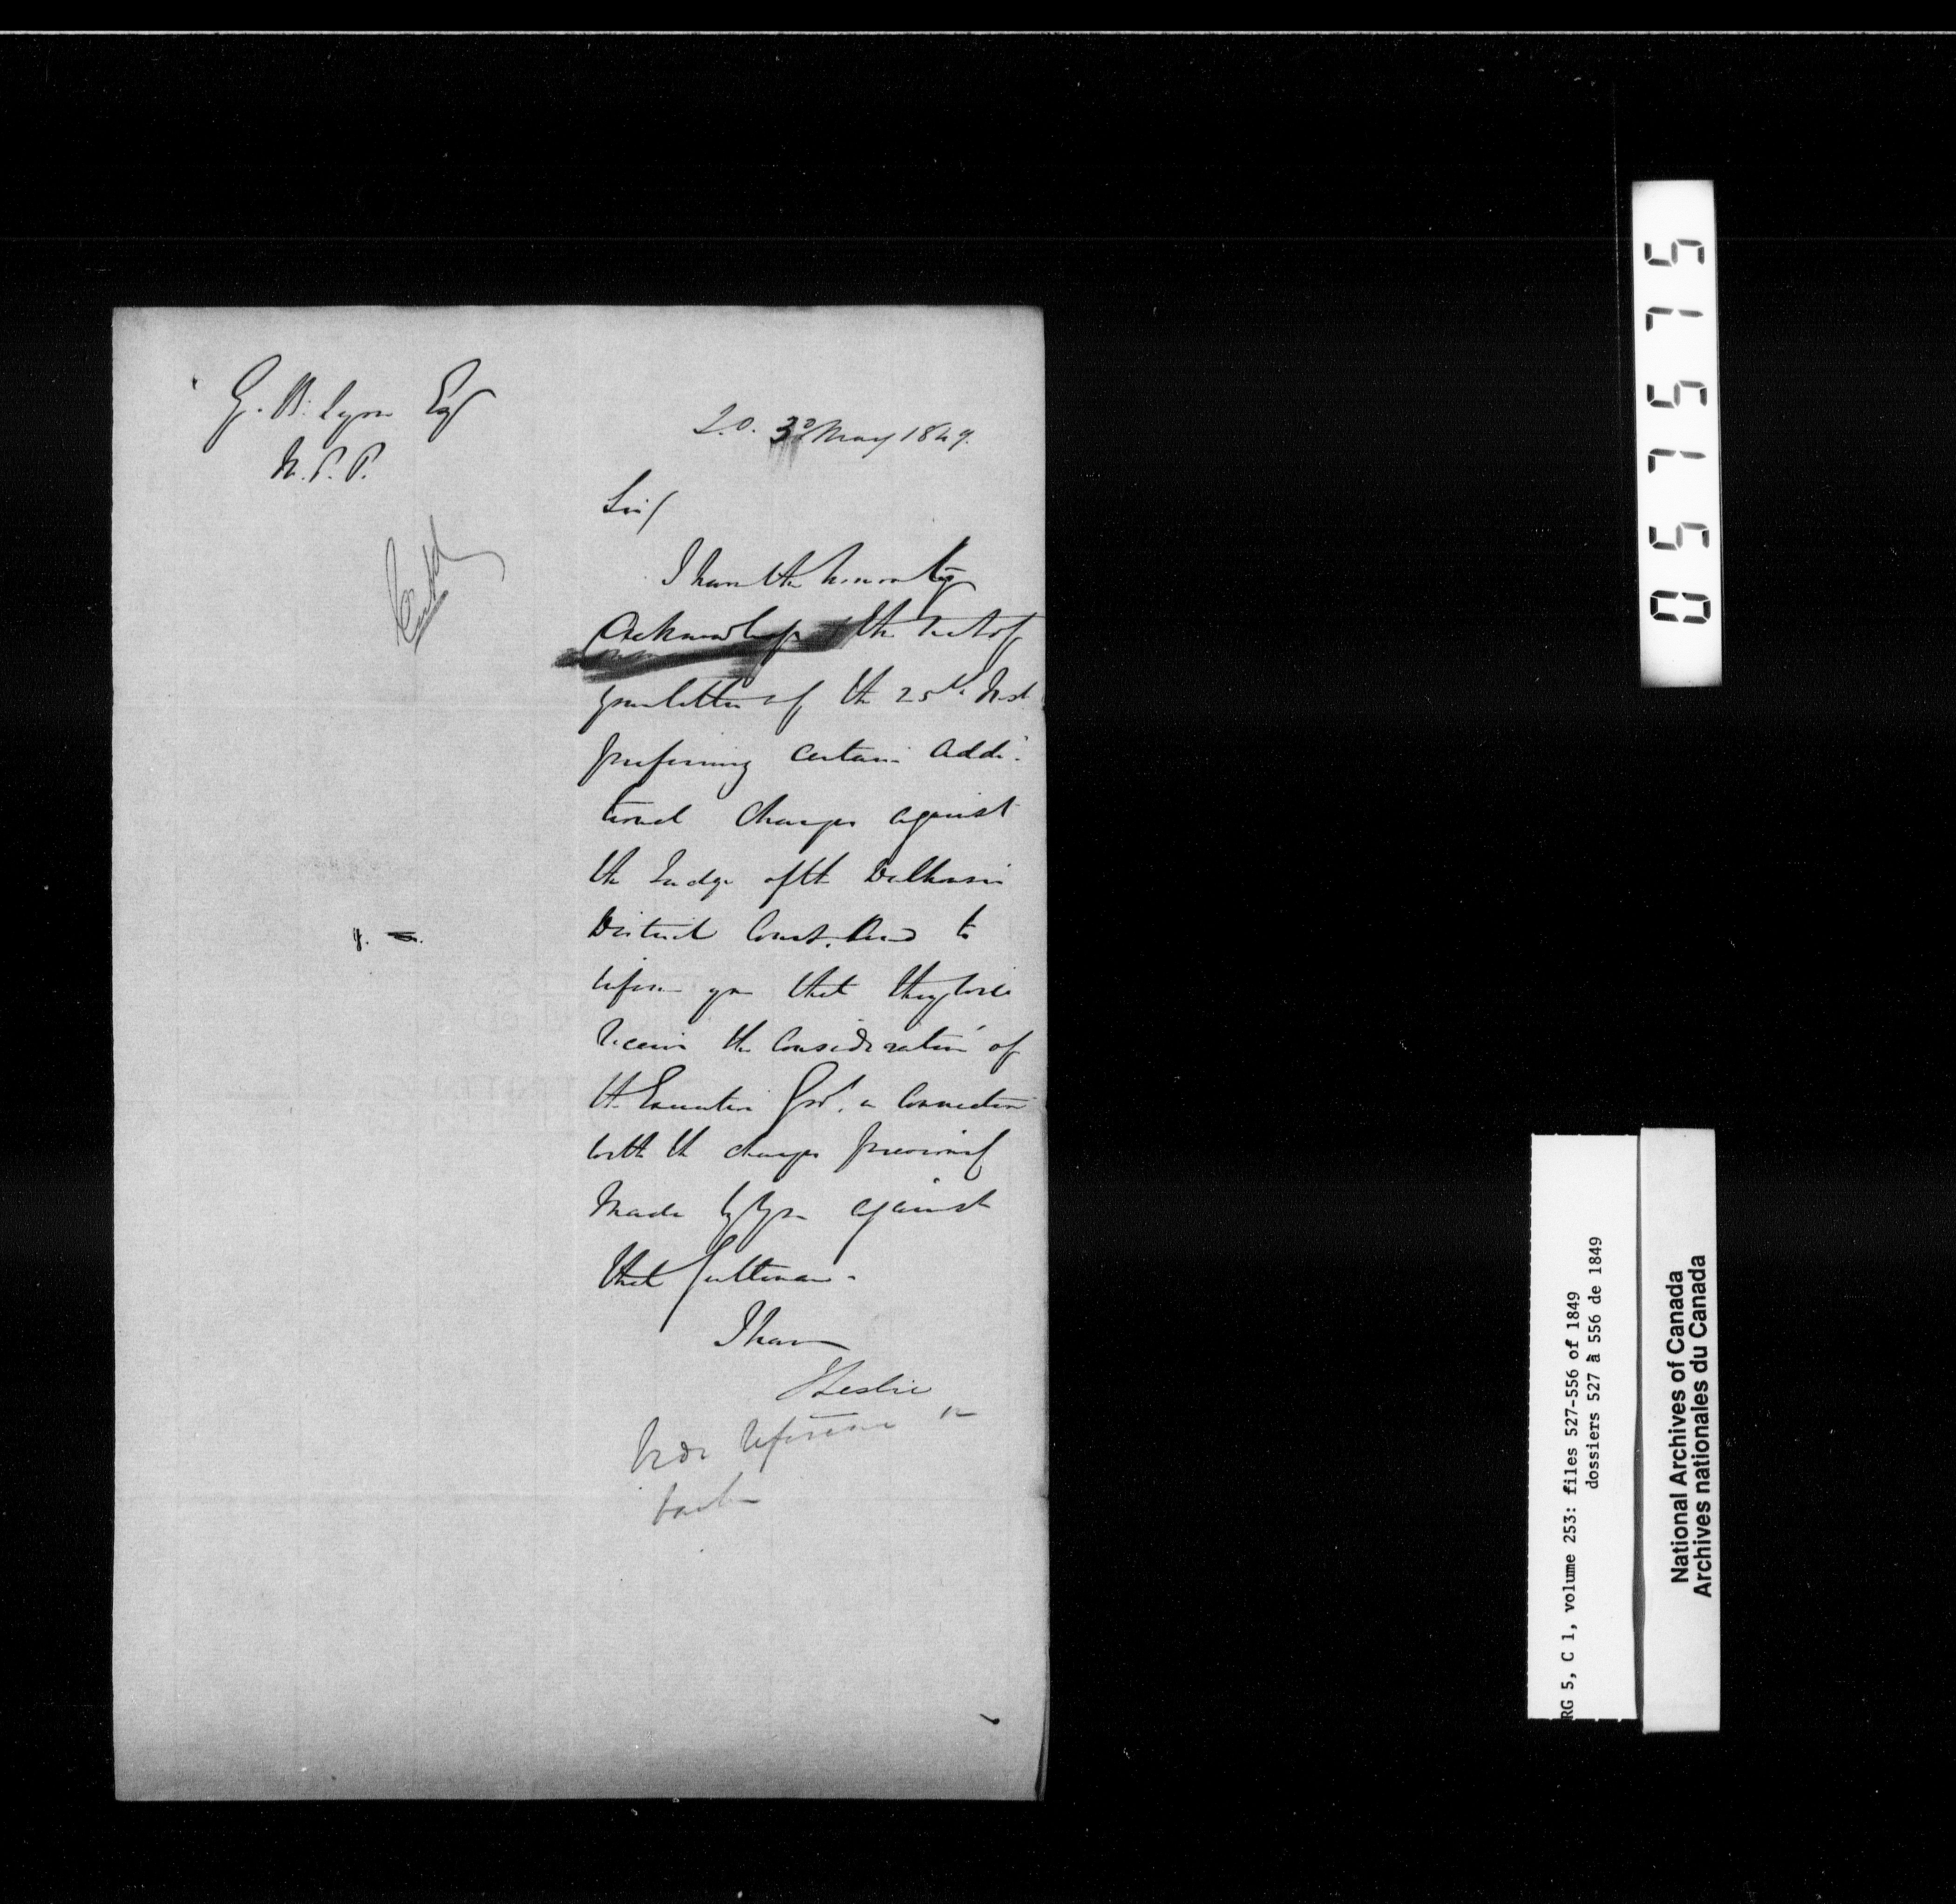 G. B. Lyon Esq
M.P.P.
S.O. 3d May 1849.
Sir/
I have the honor to
Acknowledge the rect of
your letter of the 25th Inst
preferring certain addi-
tional charges against
the Judge of the Dalhousie
District Court, and to
inform you that they will
receive the consideration of
the Executive Govt. in connection
with the charges previously
made by you against
that Gentleman.
I have
J Leslie
Vide reference in
057575
RG 5, C 1, volume 253: files 527-556 of 1849
dossiers 527 à 556 de 1849
National Archives of Canada
Archives nationales du Canada